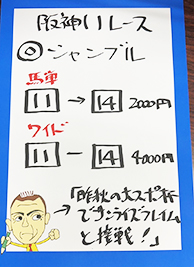 阪神11レース
◎ジャンブル
馬単
11→14 2000円
ワイド
11－14 4000円
→「昨秋の大スポ杯
でサンライズフレイム
と接戦！」